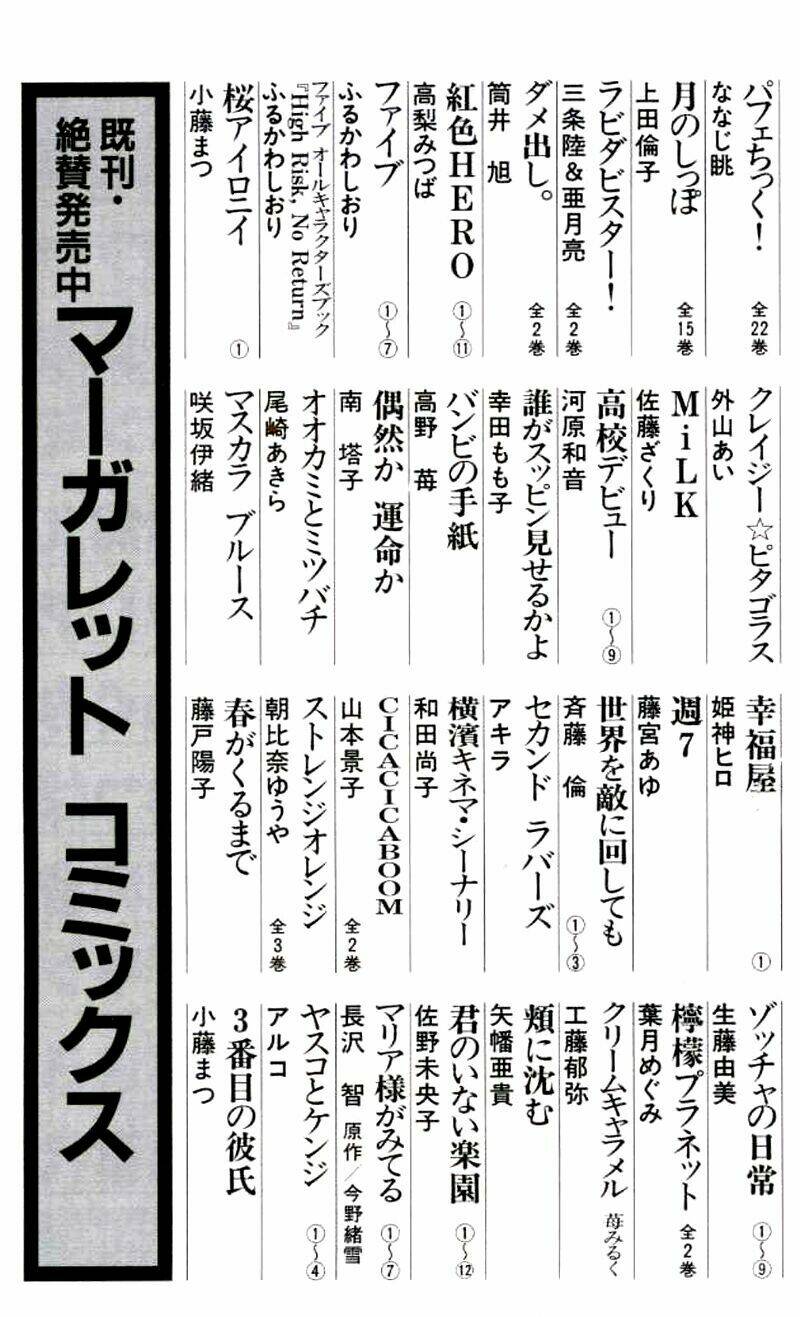 パフェちっく！ 全22巻
ななじ眺
月のしっぽ 全15巻
上田倫子
ラビダビスター！ 全2巻
三条陸＆亜月亮
ダメ出し。 全2巻
筒井 旭
紅色HERO ①〜⑪
高梨みつば
ファイブ ①〜⑦
ふるかわしおり
ファイブ オールキャラクターズブック
『High Risk, No Return』
ふるかわしおり
桜アイロニイ ①
小藤まつ
クレイジー☆ピタゴラス
外山あい
MiLK
佐藤ざくり
高校デビュー ①〜⑨
河原和音
誰がスッピン見せるかよ
幸田もも子
バンビの手紙
高野 苺
偶然か 運命か
南 塔子
オオカミとミツバチ
尾崎あきら
マスカラ ブルース
咲坂伊緒
幸福屋 ①
姫神ヒロ
週7
藤宮あゆ
世界を敵に回しても ①〜③
斉藤 倫
セカンド ラバーズ
アキラ
横濱キネマ・シーナリー
和田尚子
CICACICABOOM 全2巻
山本景子
ストレンジオレンジ 全3巻
朝比奈ゆうや
春がくるまで
藤戸陽子
ゾッチャの日常 ①〜⑨
生藤由美
檸檬プラネット 全2巻
葉月めぐみ
クリームキャラメル 苺みるく
工藤郁弥
頬に沈む
矢幡亜貴
君のいない楽園 ①〜⑫
佐野未央子
マリア様がみてる ①〜⑦
長沢 智 原作／今野緒雪
ヤスコとケンジ ①〜④
アルコ
3番目の彼氏
小藤まつ
既刊・
絶賛発売中
マーガレット コミックス